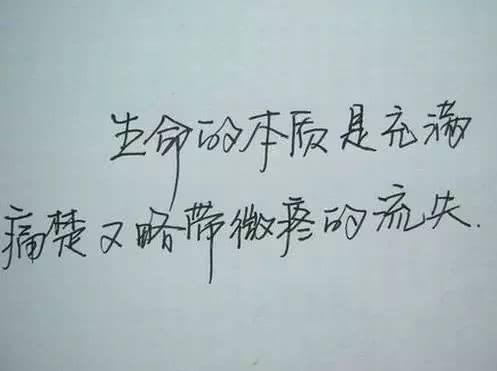 生命的本质是充满
痛楚又略带微疼的流失.